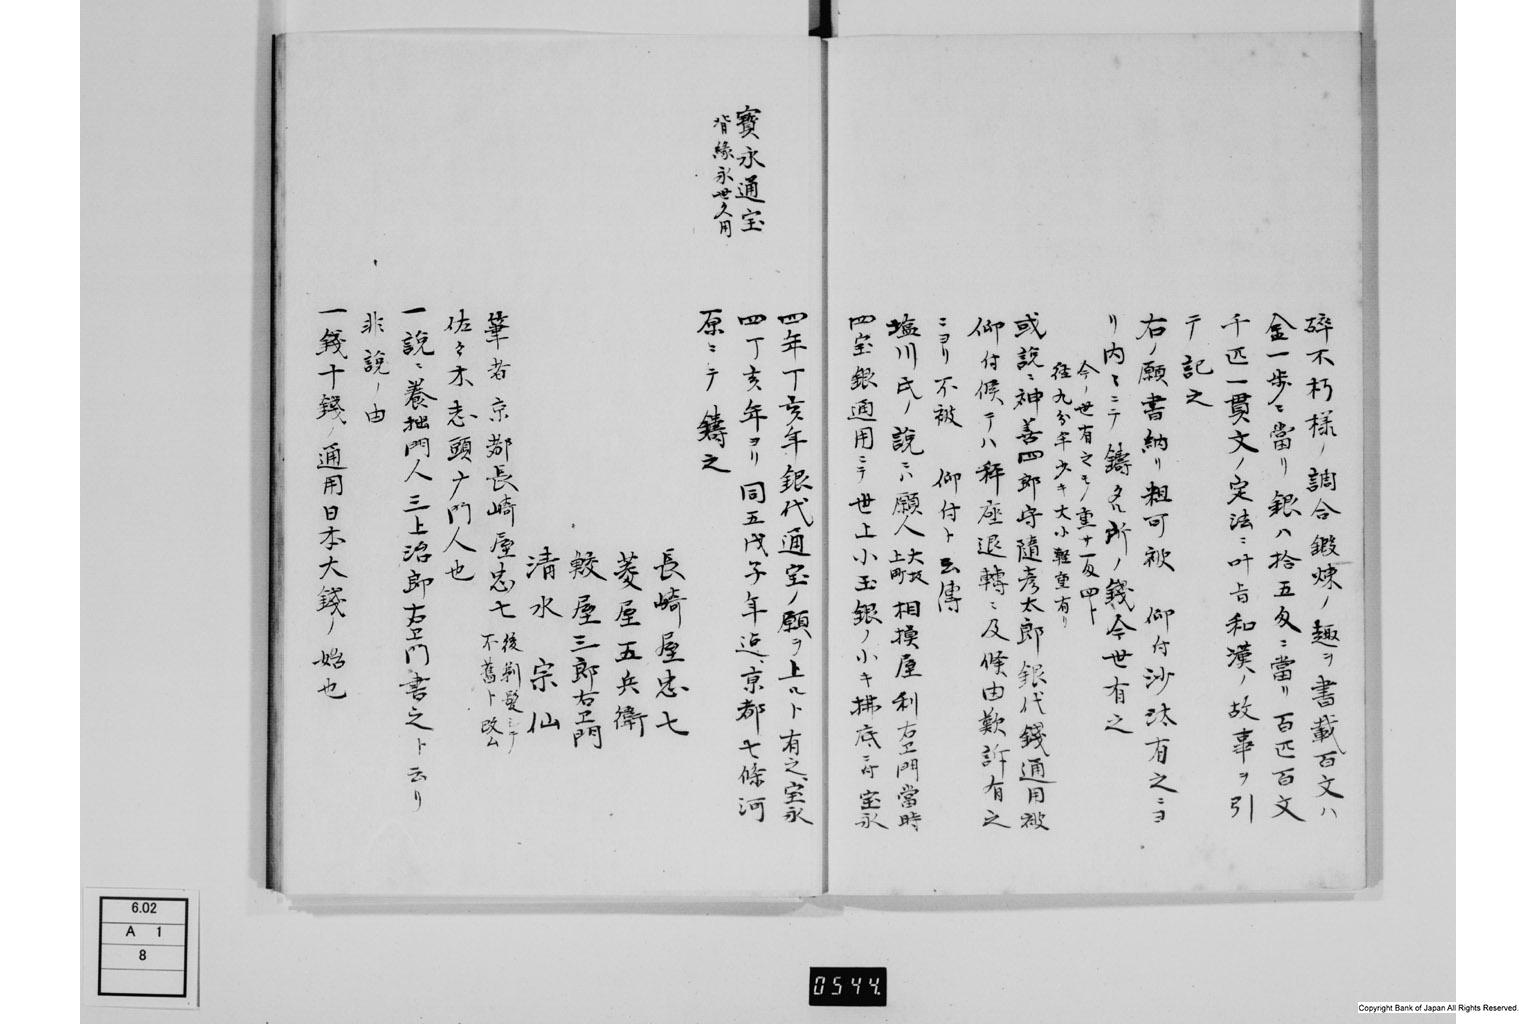 碎不朽様ノ調合鍛煉ノ趣ヲ書載百文ハ
金一歩ニ當リ銀ハ拾五匁ニ當リ百匹百文
千匹一貫文ノ定法ニ叶旨和漢ノ故事ヲ引
テ記之
右ノ願書納リ粗可被 仰付沙汰有之ニヨ
リ内々ニテ鑄タル所ノ錢今世有之
今ノ世有之モノ重サ一匁四卜
径九分半少キ大小軽重有リ
或説ニ神善四郎守隨彦太郎銀代錢通用被
仰付候テハ秤座退轉ニ及候由歎訴有之
ニヨリ不被 仰付ト云傳
塩川氏ノ説ニハ願人大坂上町相摸屋利右卫門當時
四宝銀通用ニテ世上小玉銀ノ小キ拂底ニ付宝永
四年丁亥年銀代通宝ノ願ヲ上ルト有之宝永
寳永通宝
背緣永世久用
四丁亥年ヨリ同五戊子年迠京都七條河
原ニテ鑄之
長﨑屋忠七
菱屋五兵衛
鮫屋三郎右卫門
清水宗仙
筆者京都長﨑屋忠七後剃髪シテ
不舊ト改ム
佐々木志頭ナ門人也
一説ニ養拙門人三上治郎右卫門書之ト云リ
非説ノ由
一錢十錢ノ通用日本大錢ノ始也
6.02
A 1
8
0544.
Copyright Bank of Japan All Rights Reserved.